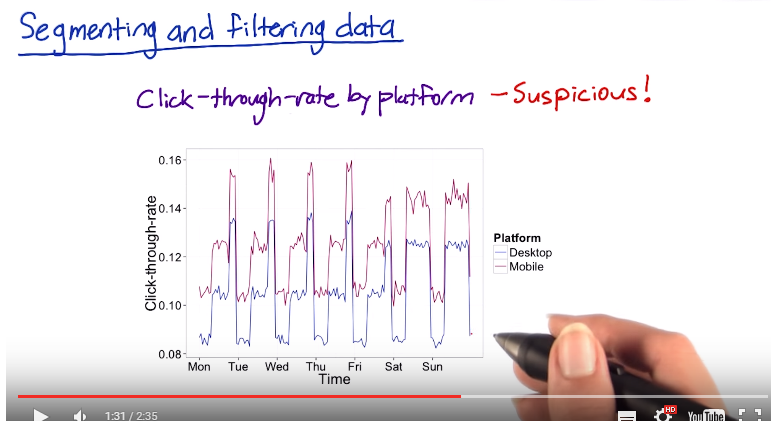 Segmenting and filtering data
Click-through-rate by platform - Suspicious!
0.16
0.14
0.12
0.10
0.08
Click-through-rate
Mon Tue Wed Thu Fri Sat Sun
Time
Platform
Desktop
Mobile
1:31 / 2:35
HD
YouTube